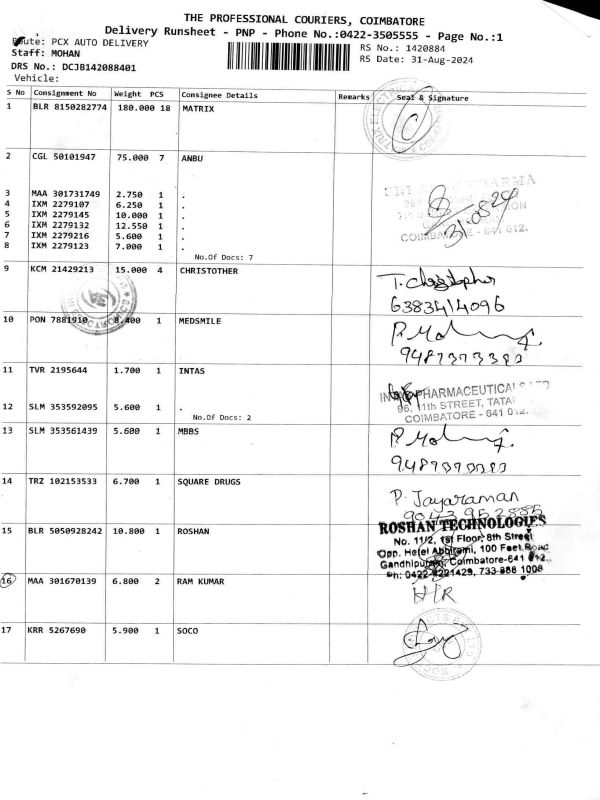 THE PROFESSIONAL COURIERS, COIMBATORE
Delivery Runsheet - PNP - Phone No.:0422-3505555 - Page No.:1
Route: PCX AUTO DELIVERY
Staff: MOHAN
DRS No.: DCJB142088401
Vehicle:
RS No.: 1420884
RS Date: 31-Aug-2024
S No Consignment No Weight PCS Consignee Details Remarks Seal & Signature
1 BLR 8150282774 180.000 18 MATRIX
2 CGL 50101947 75.000 7 ANBU
3 MAA 301731749 2.750 1 .
4 IXM 2279107 6.250 1 .
5 IXM 2279145 10.000 1 .
6 IXM 2279132 12.550 1 .
7 IXM 2279216 5.600 1 .
8 IXM 2279123 7.000 1 .
No.Of Docs: 7
31.08.24
COIMBATORE - 641 012.
9 KCM 21429213 15.000 4 CHRISTOTHER
T. Christopher
6383414096
10 PON 7881910 8.400 1 MEDSMILE
11 TVR 2195644 1.700 1 INTAS
PHARMACEUTICALS LTD
96, 11th STREET, TATA
COIMBATORE - 641 012.
12 SLM 353592095 5.600 1 .
No.Of Docs: 2
13 SLM 353561439 5.600 1 MBBS
14 TRZ 102153533 6.700 1 SQUARE DRUGS
P. Jayaraman
15 BLR 5050928242 10.800 1 ROSHAN
ROSHAN TECHNOLOGIES
No. 11/2, 1st Floor, 8th Street
Opp. Hotel Abbirami, 100 Feet Road
Gandhipuram, Coimbatore-641 012.
Ph: 0422-4221429, 733 888 1008
16 MAA 301670139 6.800 2 RAM KUMAR
H/R
17 KRR 5267690 5.900 1 SOCO